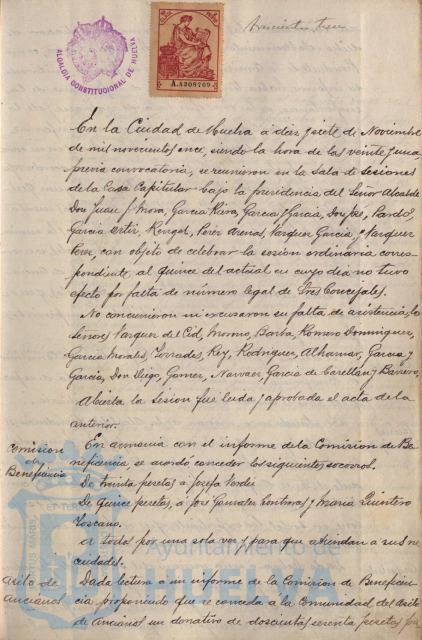 ALCALDIA CONSTITUCIONAL DE HUELVA
A.4308769
En la Ciudad de Huelva a diez y siete de Noviembre
de mil novecientos once, siendo la hora de las veinte y una,
previa convocatoria, se reunieron en la Sala de sesiones
de la Casa Capitular bajo la presidencia del Señor Alcalde
Don Juan J. Mora, Garcia Riera, Garcia y Garcia, Pardo,
Garcia Ortiz, Rengel, Perez Arenas, Vazquez Garcia y Vazquez
Perez, con objeto de celebrar la sesion ordinaria corres-
pondiente, al quince del actual en cuyo dia no tuvo
efecto por falta de número legal de Sres Concejales.
No concurrieron ni excusaron su falta de asistencia, los
Señores Vazquez del Cid, Moreno, Borba, Romero Dominguez,
Garcia Morales, Terrades, Rey, Rodriguez, Alhamar, Garcia y
Garcia, Don Diego, Gomez, Narvaez, Garcia de Carellan y Barrero.
Abierta la Sesion fué leida y aprobada el acta de la
anterior.
Comision de Beneficencia
En armonia con el informe de la Comision de Be-
neficencia se acordó conceder los siguientes socorros.
De treinta pesetas a Josefa Verdié
De quince pesetas, a José Gonzalez Contreras y Maria Quintero
Toscano.
A todos por una sola vez y para que atiendan a sus ne
cesidades.
Asilo de Ancianos
Dada lectura a un informe de la Comision de Beneficen-
cia proponiendo que se conceda a la Comunidad del Asilo
de Ancianos un donativo de doscientas sesenta pesetas por
Ayuntamiento de
HUELVA